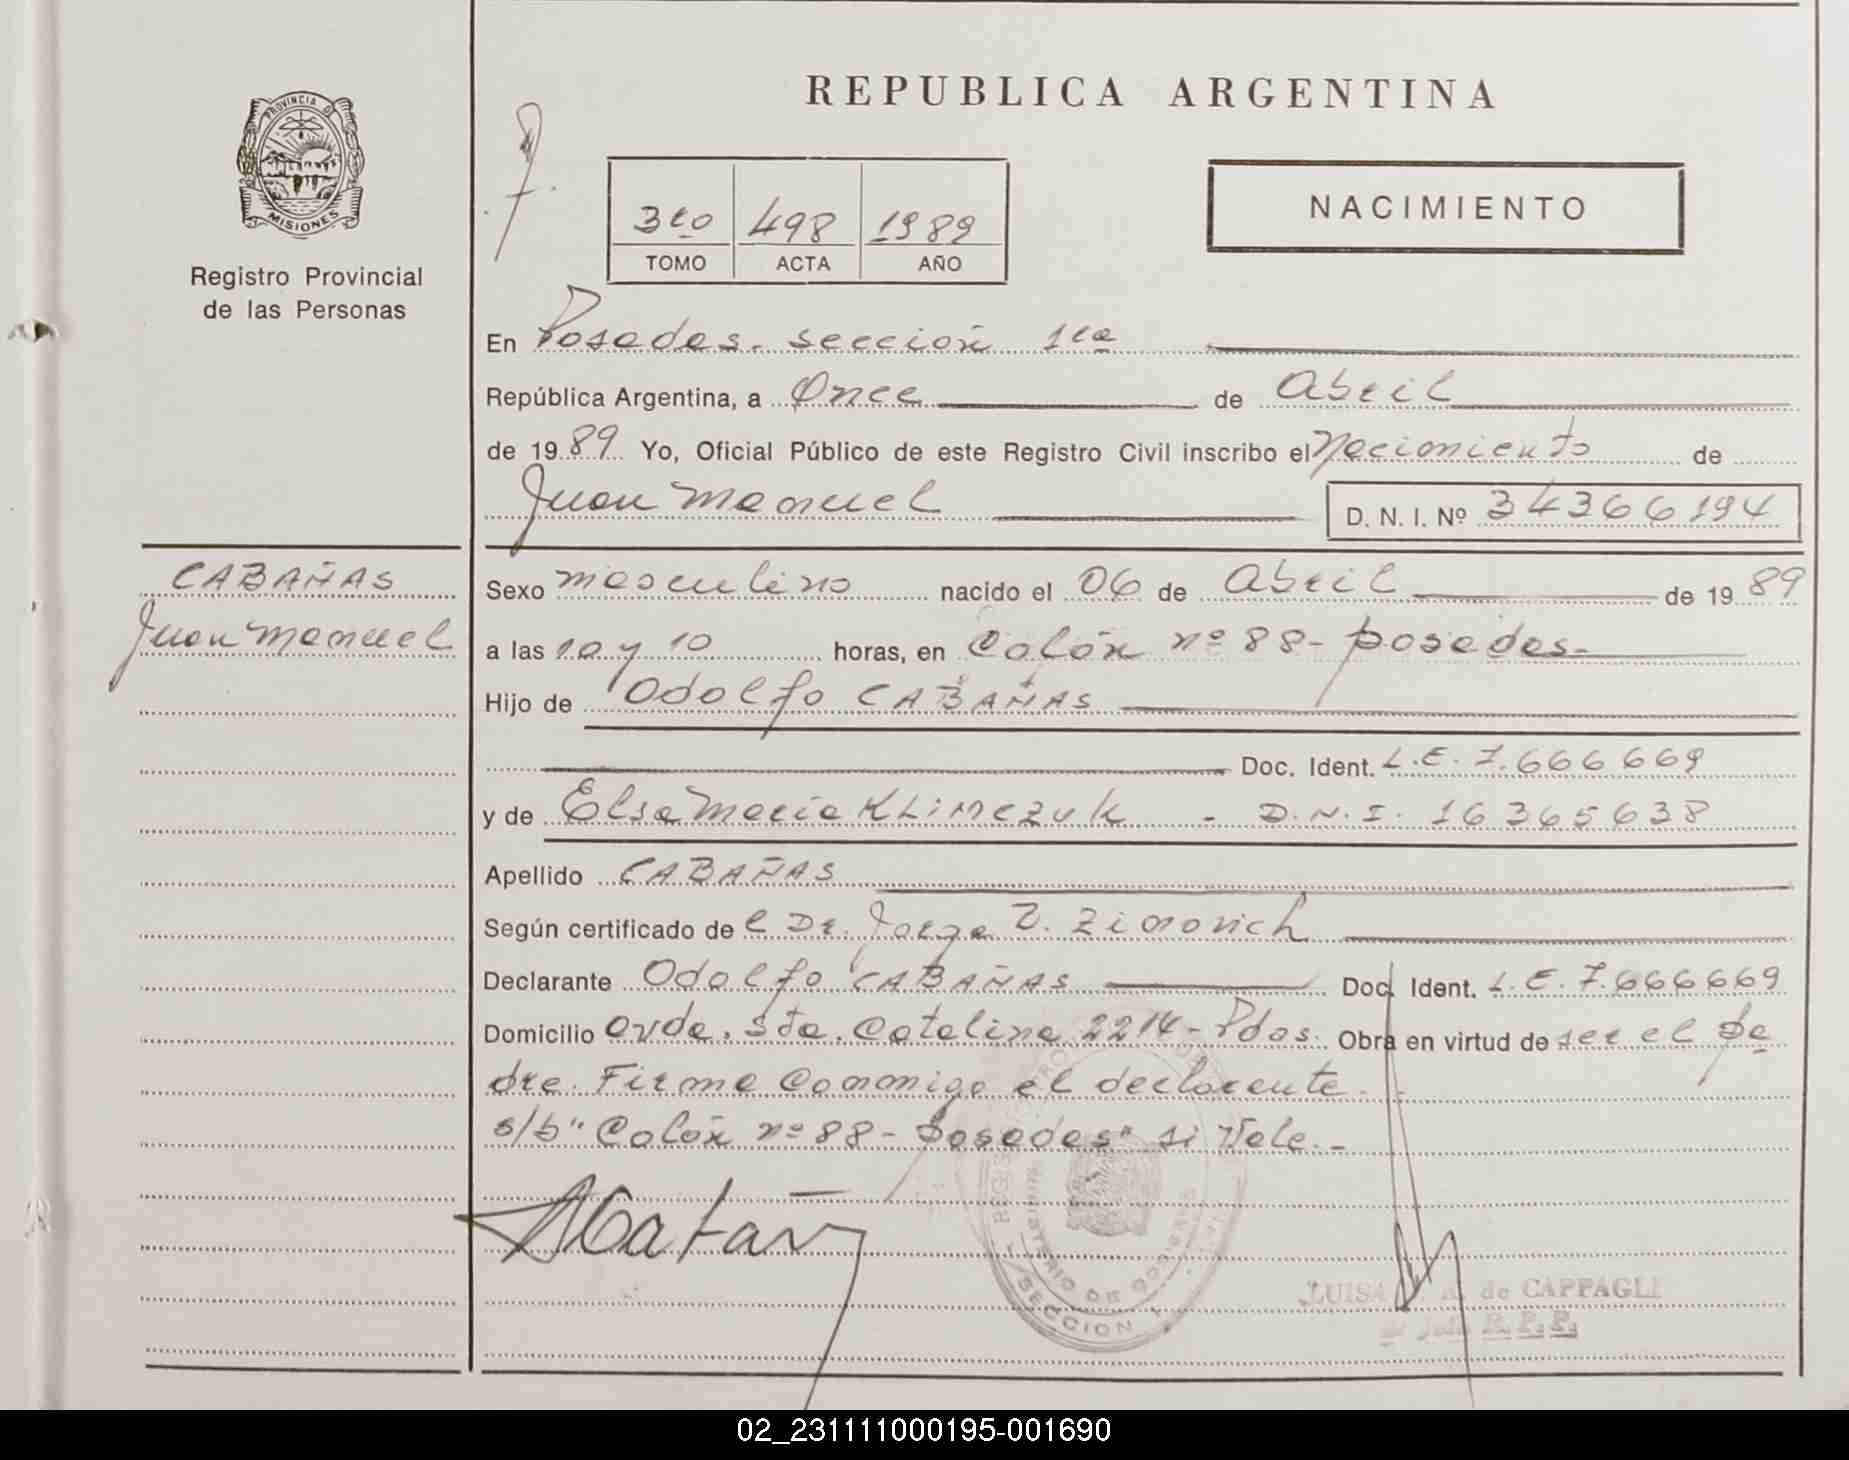 REPUBLICA ARGENTINA
PROVINCIA DE
MISIONES
Registro Provincial
de las Personas
3ro 498 1989
TOMO ACTA AÑO
NACIMIENTO
En Posadas. sección 1ra
República Argentina, a Once de Abril
de 1989 Yo, Oficial Público de este Registro Civil inscribo el Nacimiento de
Juan Manuel D. N. I. Nº 34366194
CABAÑAS
Juan Manuel
Sexo masculino nacido el 06 de Abril de 1989
a las 10 y 10 horas, en Colón nº 88- posadas-
Hijo de Odolfo CABAÑAS
Doc. Ident. L.E. 7.666669
y de Elsa María KLIMCZUK - D.N.I. 16365638
Apellido CABAÑAS
Según certificado de l Dr. Jorge Zimovich
Declarante Odolfo CABAÑAS Doc. Ident. L.E. 7.666669
Domicilio Avda. Sta. Catalina 2214- Pdas. Obra en virtud de ser el pa
dre. Firma Conmigo el declarante.
s/b "Colón nº 88- posadas" si Vale.-
MINISTERIO DE GOBIERNO
SECCION 1
LUISA A. de CAPPAGLI
R. P. P.
02_231111000195-001690